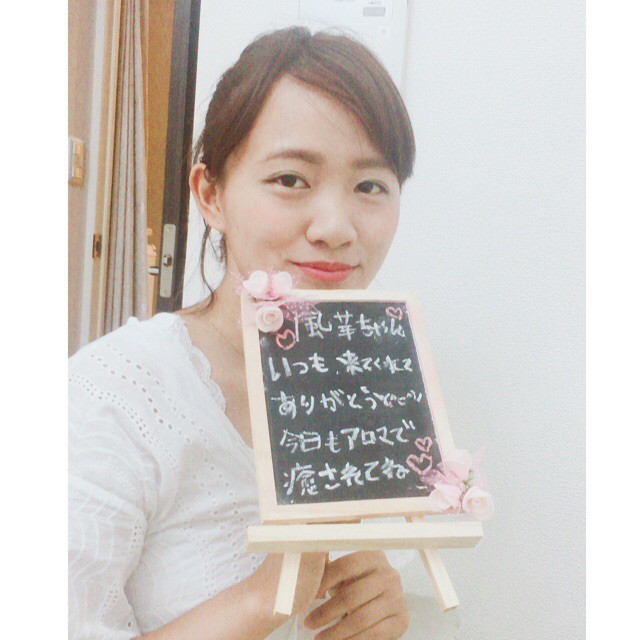 風華ちゃん
いつも来てくれて
ありがとう
今日もアロマで
癒されてね